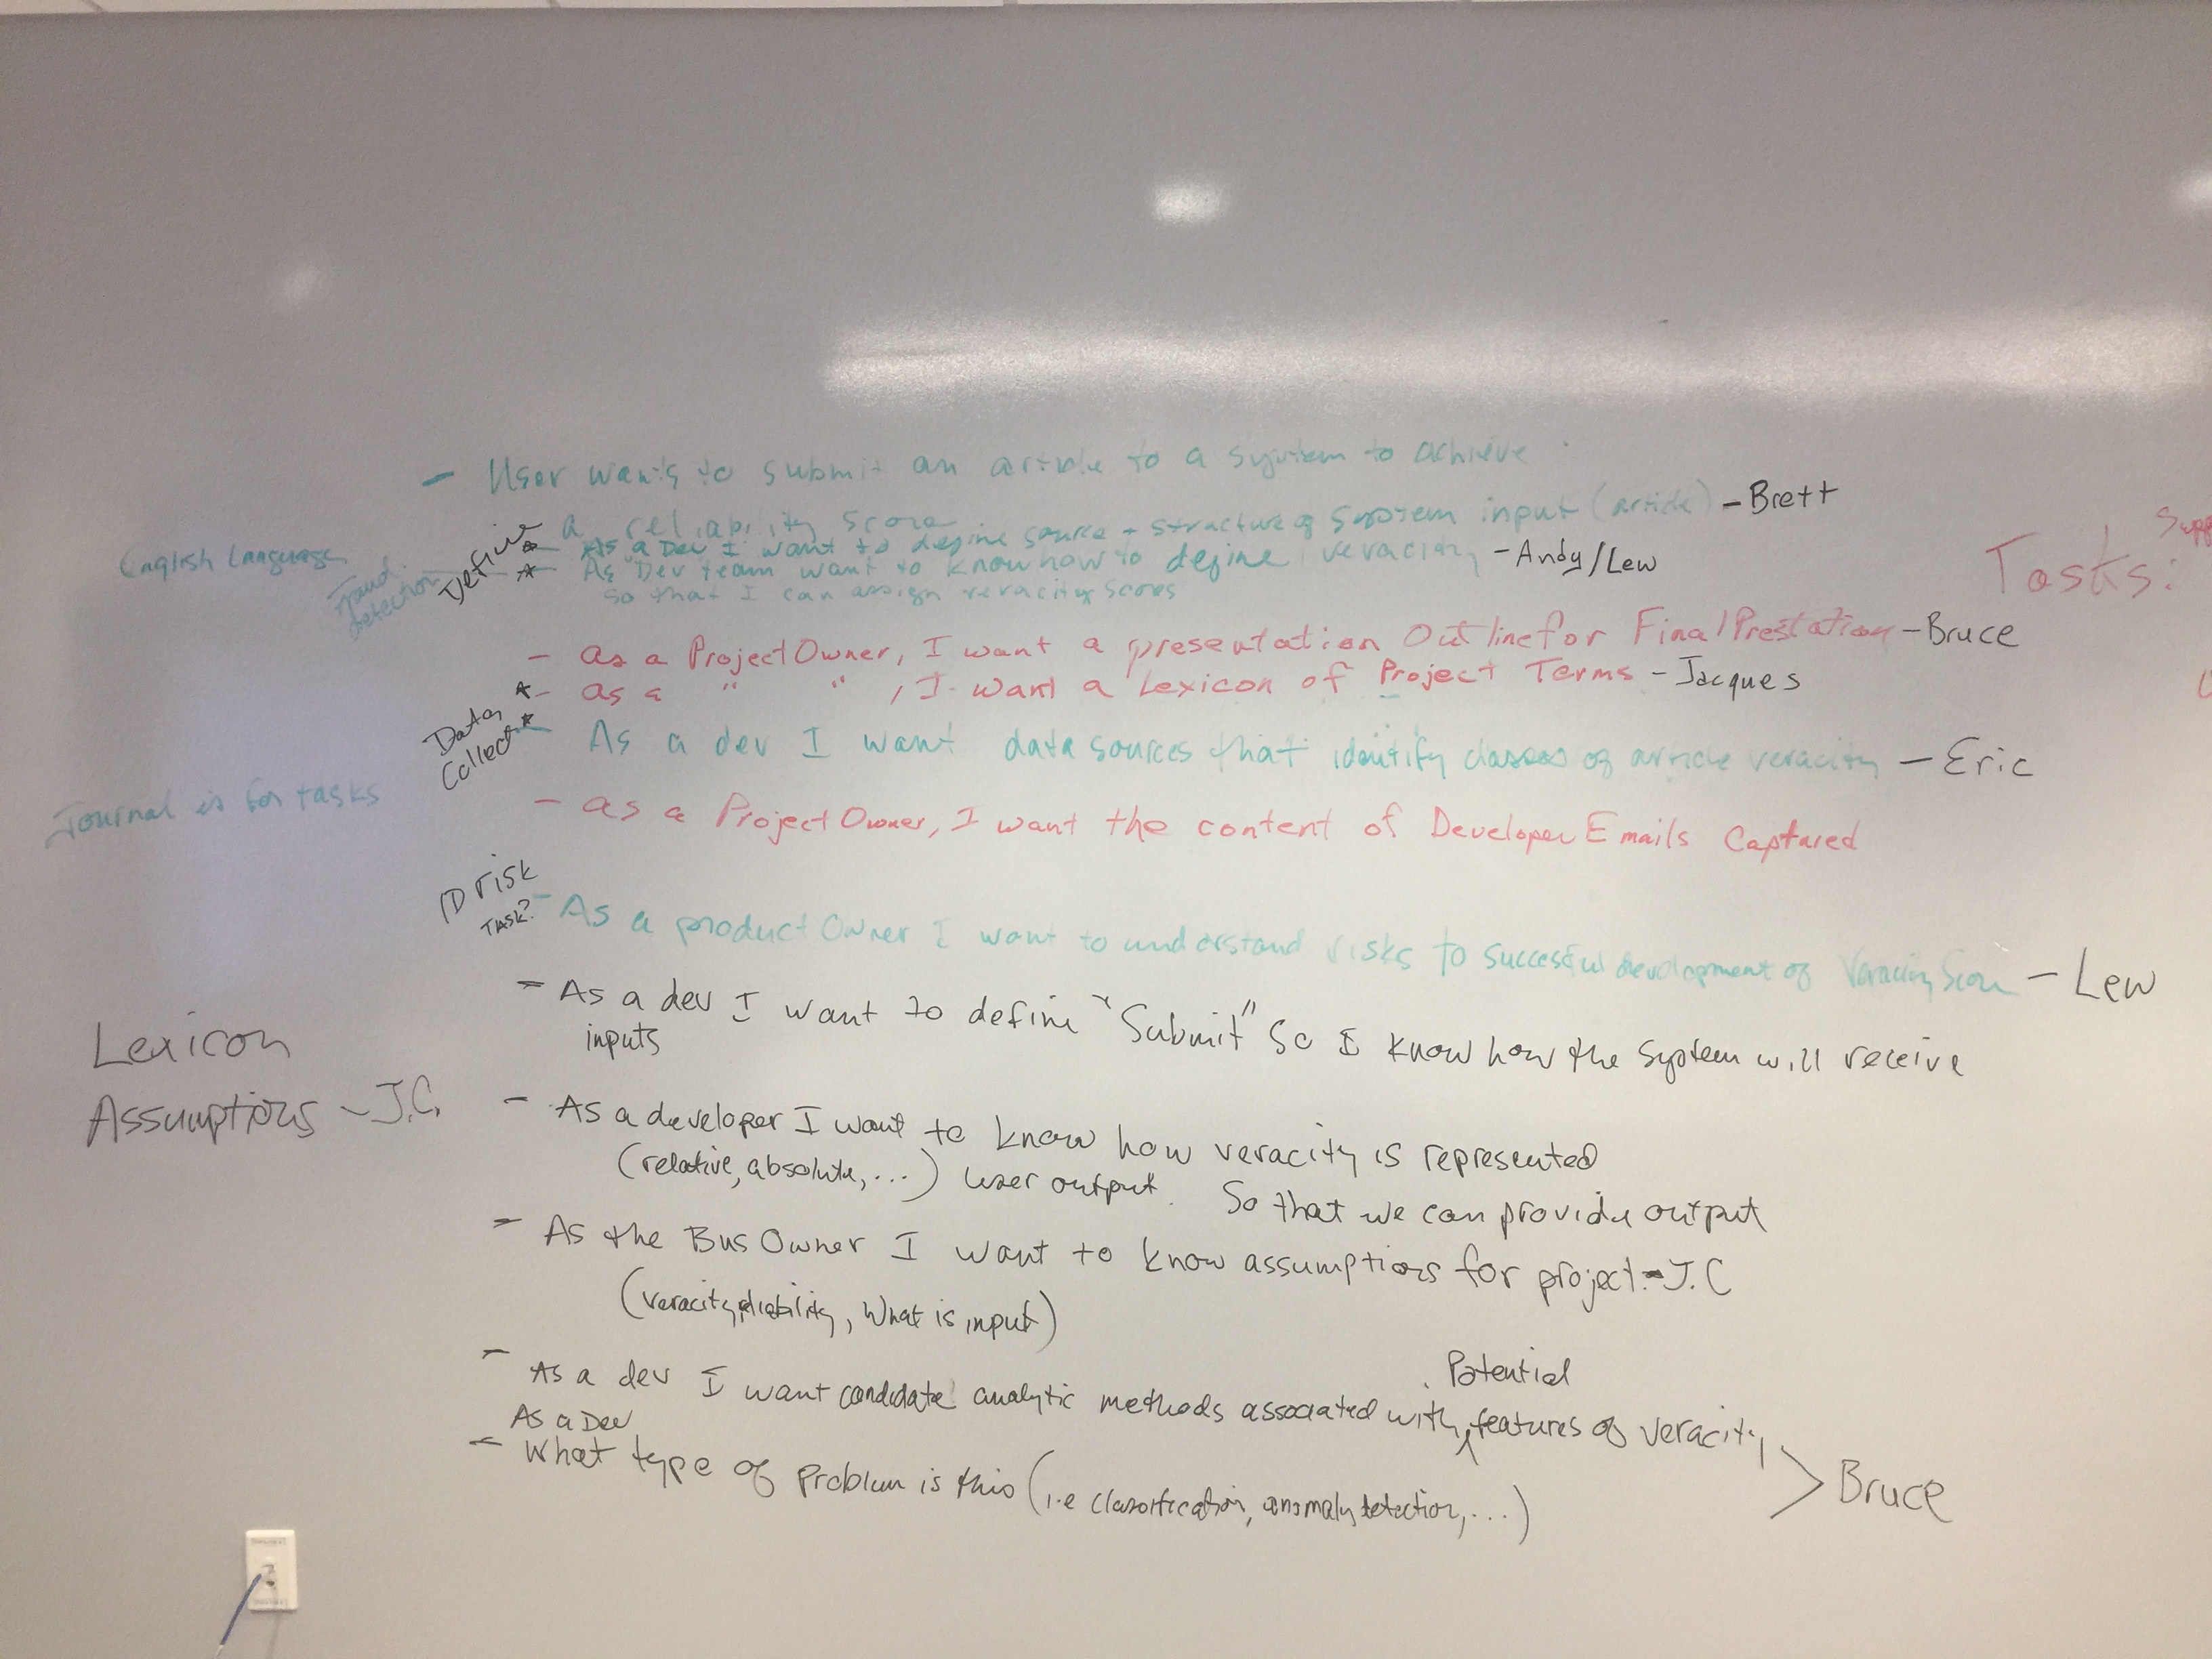 - User wants to submit an article to a system to achieve
a reliability score
* As a Dev I want to define source + structure of system input (article) - Brett
* As Dev team want to know how to define veracity - Andy/Lew
so that I can assign veracity scores
Define
English Language
Fraud
detection
Tasks:
Supp
- as a Project Owner, I want a presentation Outline for Final Prestation - Bruce
*- as a " " , I want a Lexicon of Project Terms - Jacques
Data
Collect
*- As a dev I want data sources that identify classes of article veracity - Eric
Journal is for tasks
- as a Project Owner, I want the content of Developer Emails Captured
ID risk
TASK?
- As a product Owner I want to understand risks to succesful development of Veracity Score - Lew
- As a dev I want to define "Submit" So I know how the system will receive
inputs
Lexicon
Assumptions - J.C.
- As a developer I want to know how veracity is represented
(relative, absolute, ...) user output. So that we can provide output
- As the Bus Owner I want to know assumptions for project - J.C
(veracity, reliability, What is input)
- As a dev I want candidate analytic methods associated with Potential features of veracity
As a Dev
- What type of problem is this (i.e classification, anomaly detection, ...)
> Bruce